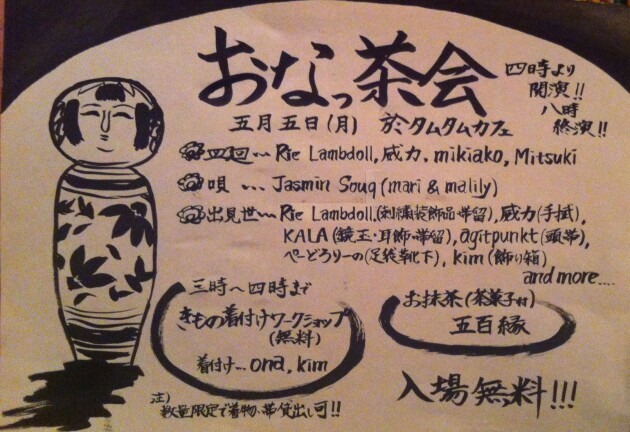 おなっ茶会
四時より
開演!!
八時
終演!!
五月五日(月) 於:タムタムカフェ
皿廻… Rie Lambdoll, 威力, mikiako, Mitsuki
唄 … Jasmin Souq (mari & malily)
出見世… Rie Lambdoll.(刺繍装飾品・帯留), 威力(手拭),
KALA(鏡玉・耳飾・帯留), agitpunkt(頭帯),
ぺーどろりーの(足袋靴下), kim(飾り箱)
and more....
三時〜四時まで
きもの着付けワークショップ
(無料)
着付け… ona, kim
お抹茶(茶菓子付)
五百縁
注)
数量限定で着物、帯貸出し可!!
入場無料!!!